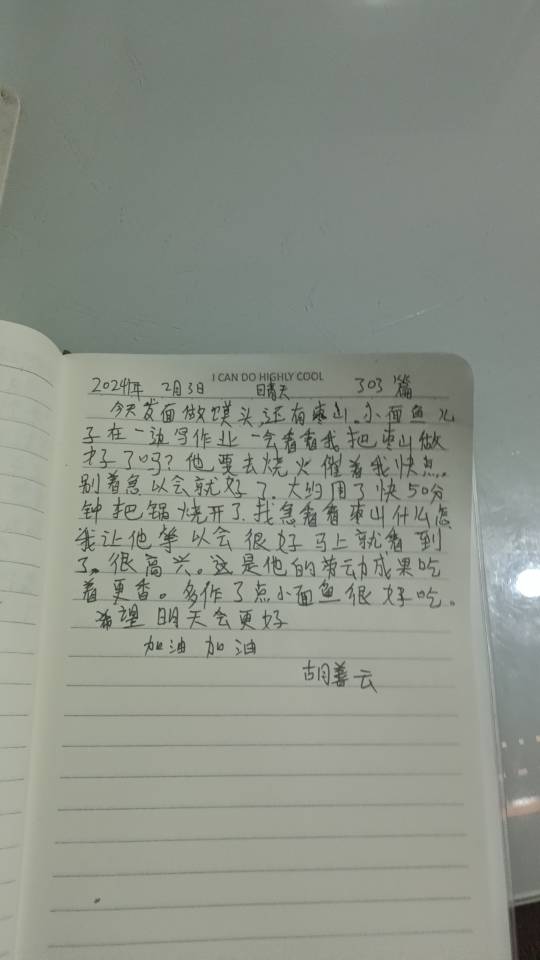 I CAN DO HIGHLY COOL
2024年 2月3日 晴天 303篇
今天发面做馍头,还有枣山.小面鱼儿
子在一边写作业一会看看我把枣山做
好了吗?他要去烧火催着我快点.
别着急以会就好了.大约用了快50分
钟把锅烧开了.找急看看枣山什么怎
我让他等以会很好马上就看到
了。很高兴。这是他的劳动成果吃
着更香。多作了点小面鱼很好吃。
希望明天会更好
加油 加油
胡善云